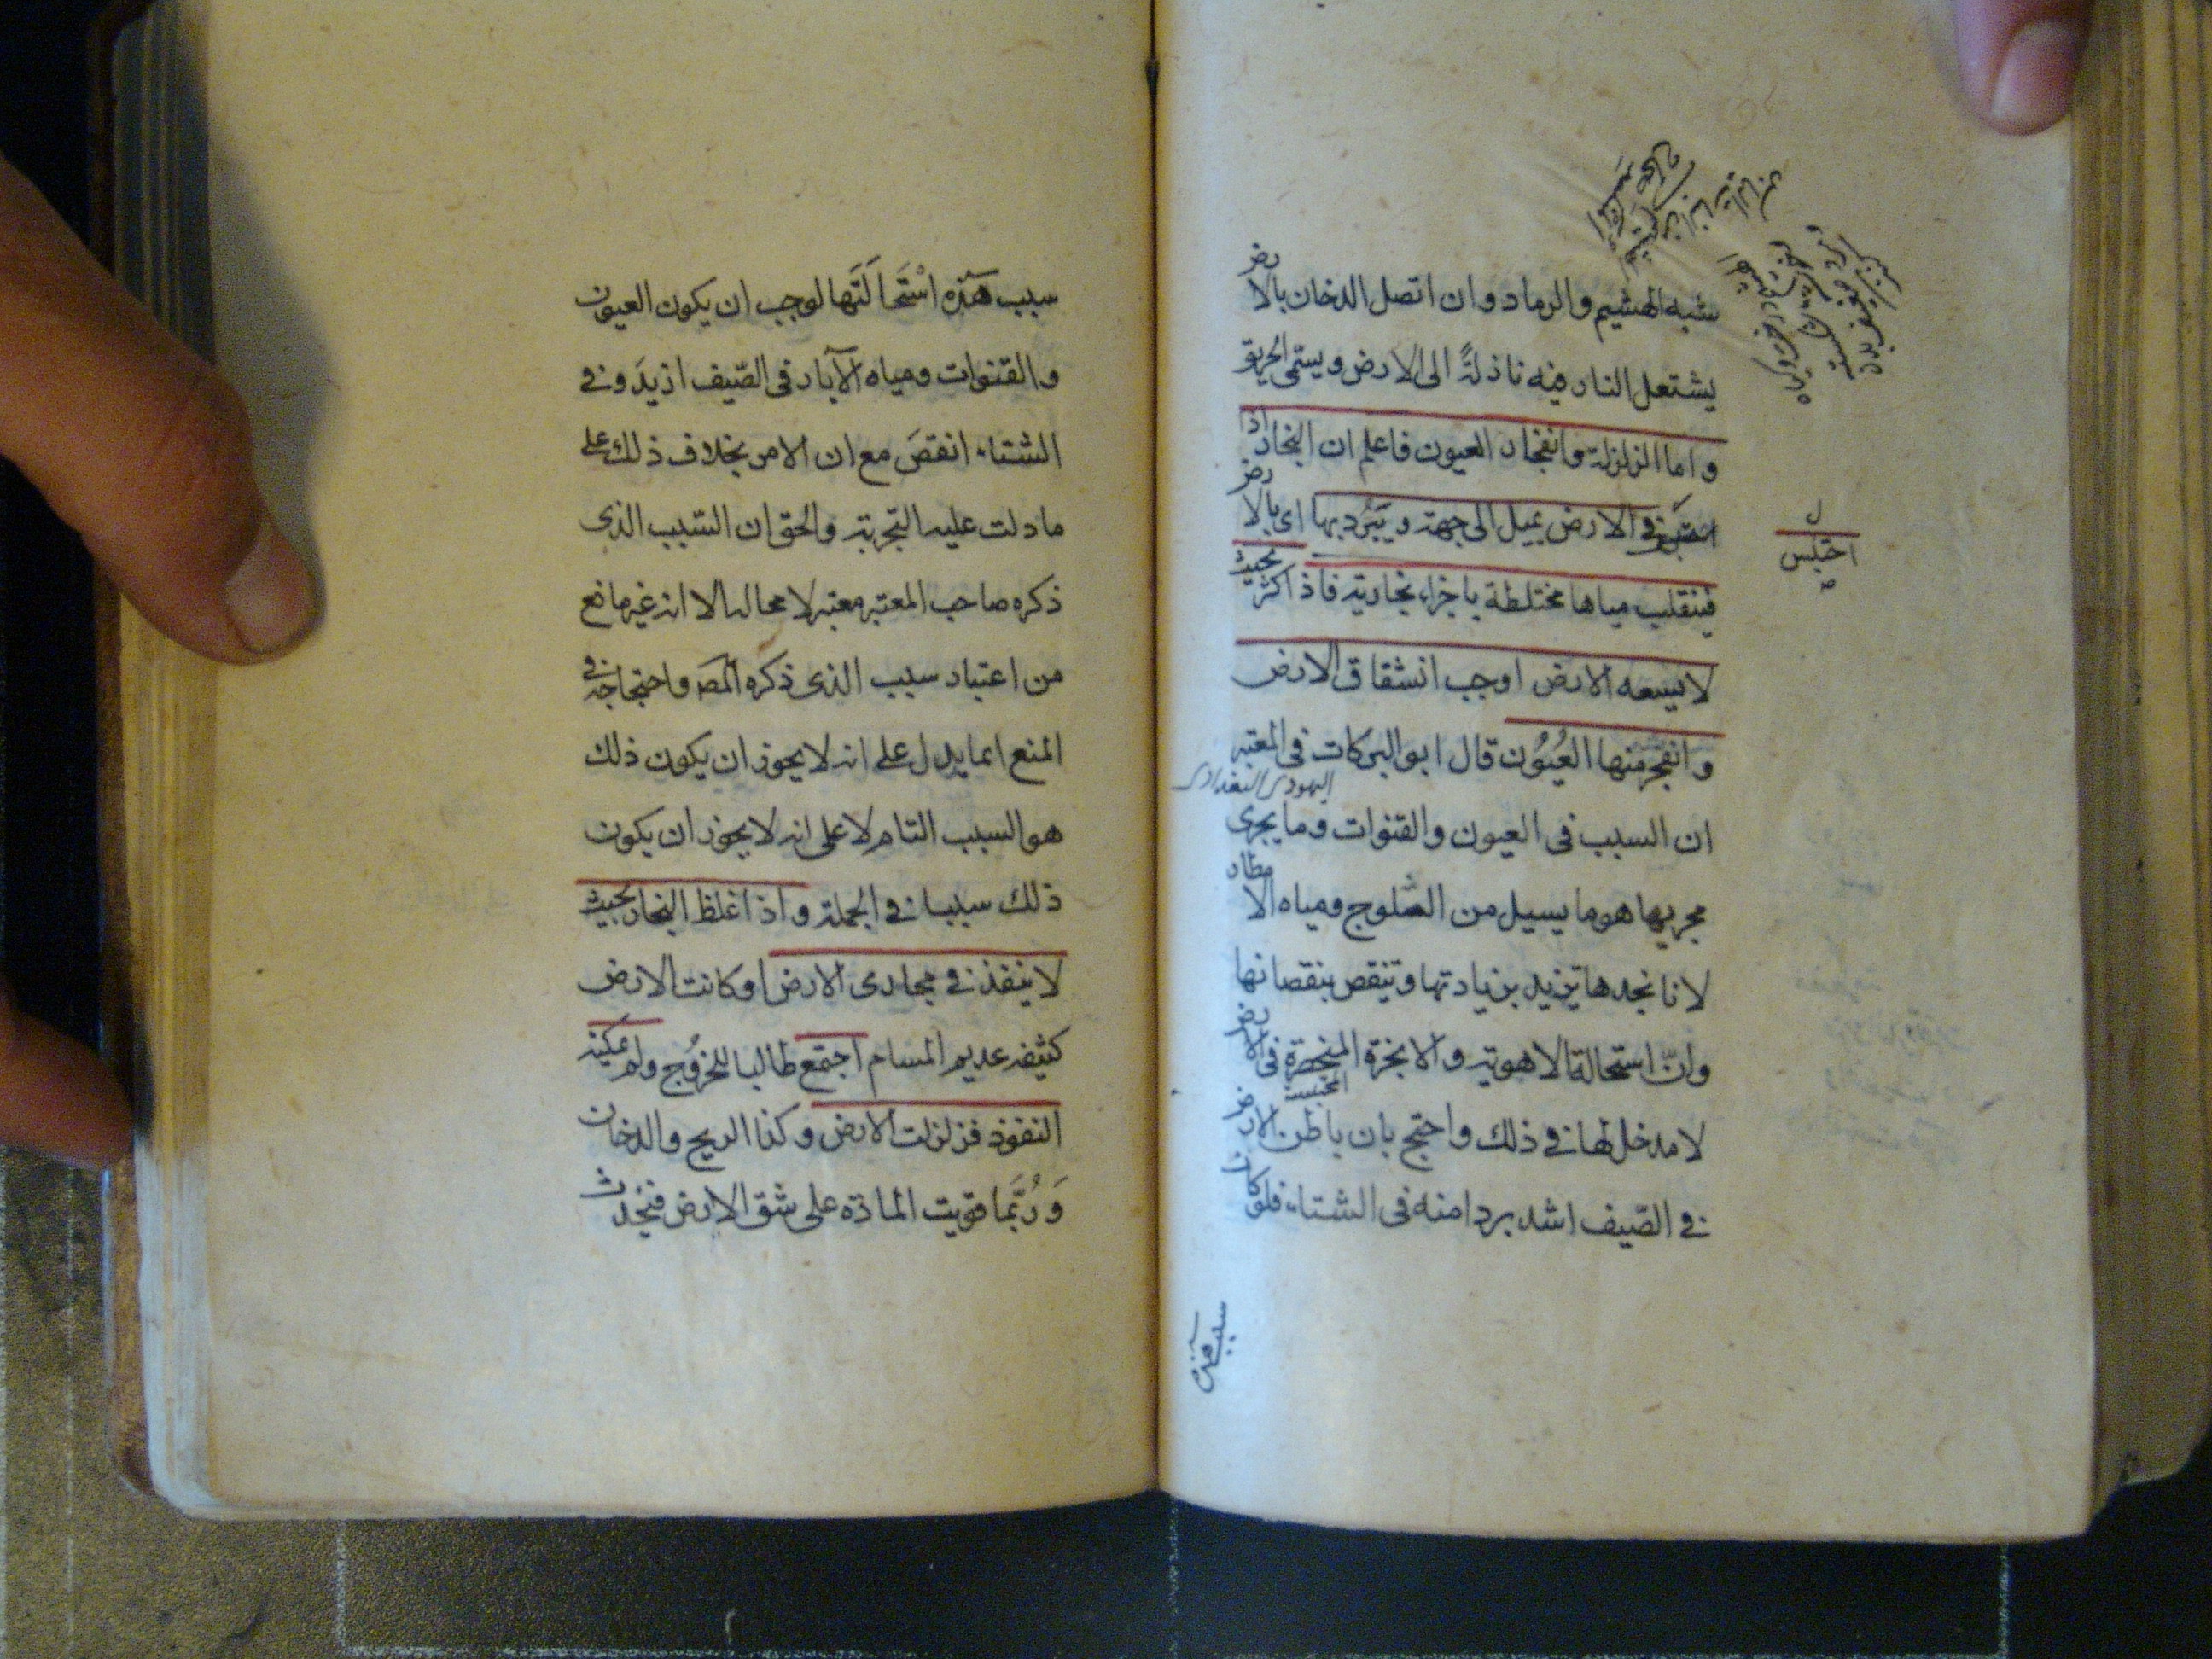 شبه الهشيم والرماد وان اتصل الدخان بالارض
يشتعل النار فيه نازلة الى الارض ويسمى الحريق
واما الزلزلة وانفجار العيون فاعلم ان البخار اذا
في الارض يميل الى جهة ويَبْرُد بها اى بالارض
فينقلب مياها مختلطة باجزاء بخارية فاذا كثر بحيث
لا يسعه الارض اوجب انشقاق الارض
وانفجر منها العُيُون قال ابو البركات فى المعتبر
اليهودى البغدادى
ان السبب فى العيون والقنوات وما يجرى
مجريها هو ما يسيل من الثلوج ومياه الامطار
لانا نجدها تزيد بزيادتها وتنقص بنقصانها
وانّ استحالة الاهوية والابخرة المنحصرة فى الارض
المحتبسة
لا مدخل لها فى ذلك واحتج بان باطن الارض
فى الصّيف اشد بردا منه فى الشتاء فلو كان
سبب هذه
احتبس
سبب هذه اسْتَحَالَتَها لوجب ان يكون العيون
والقنوات ومياه الآبار فى الصّيف ازيدَ وفى
الشتاء انقصَ مع ان الامر بخلاف ذلك على
ما دلت عليه التجربة والحق ان السّبب الذى
ذكره صاحب المعتبر معتبر لا محالة الا انه غير مانع
من اعتبار سبب الذى ذكره المصـ واحتجاجه فى
المنع انما يدل على انه لا يجوز ان يكون ذلك
هو السبب التام لا على انه لا يجوز ان يكون
ذلك سببا فى الجملة واذا غلظ البخار بحيث
لا ينفذ فى مجارى الارض او كانت الارض
كثيفة عديم المسام اجتمع طالبا للخرُوج ولم يمكنه
النفوذ فزلزلت الارض وكذا الريح والدخان
وَرُبَّمَا قويت المادّة على شق الارض فيحدث